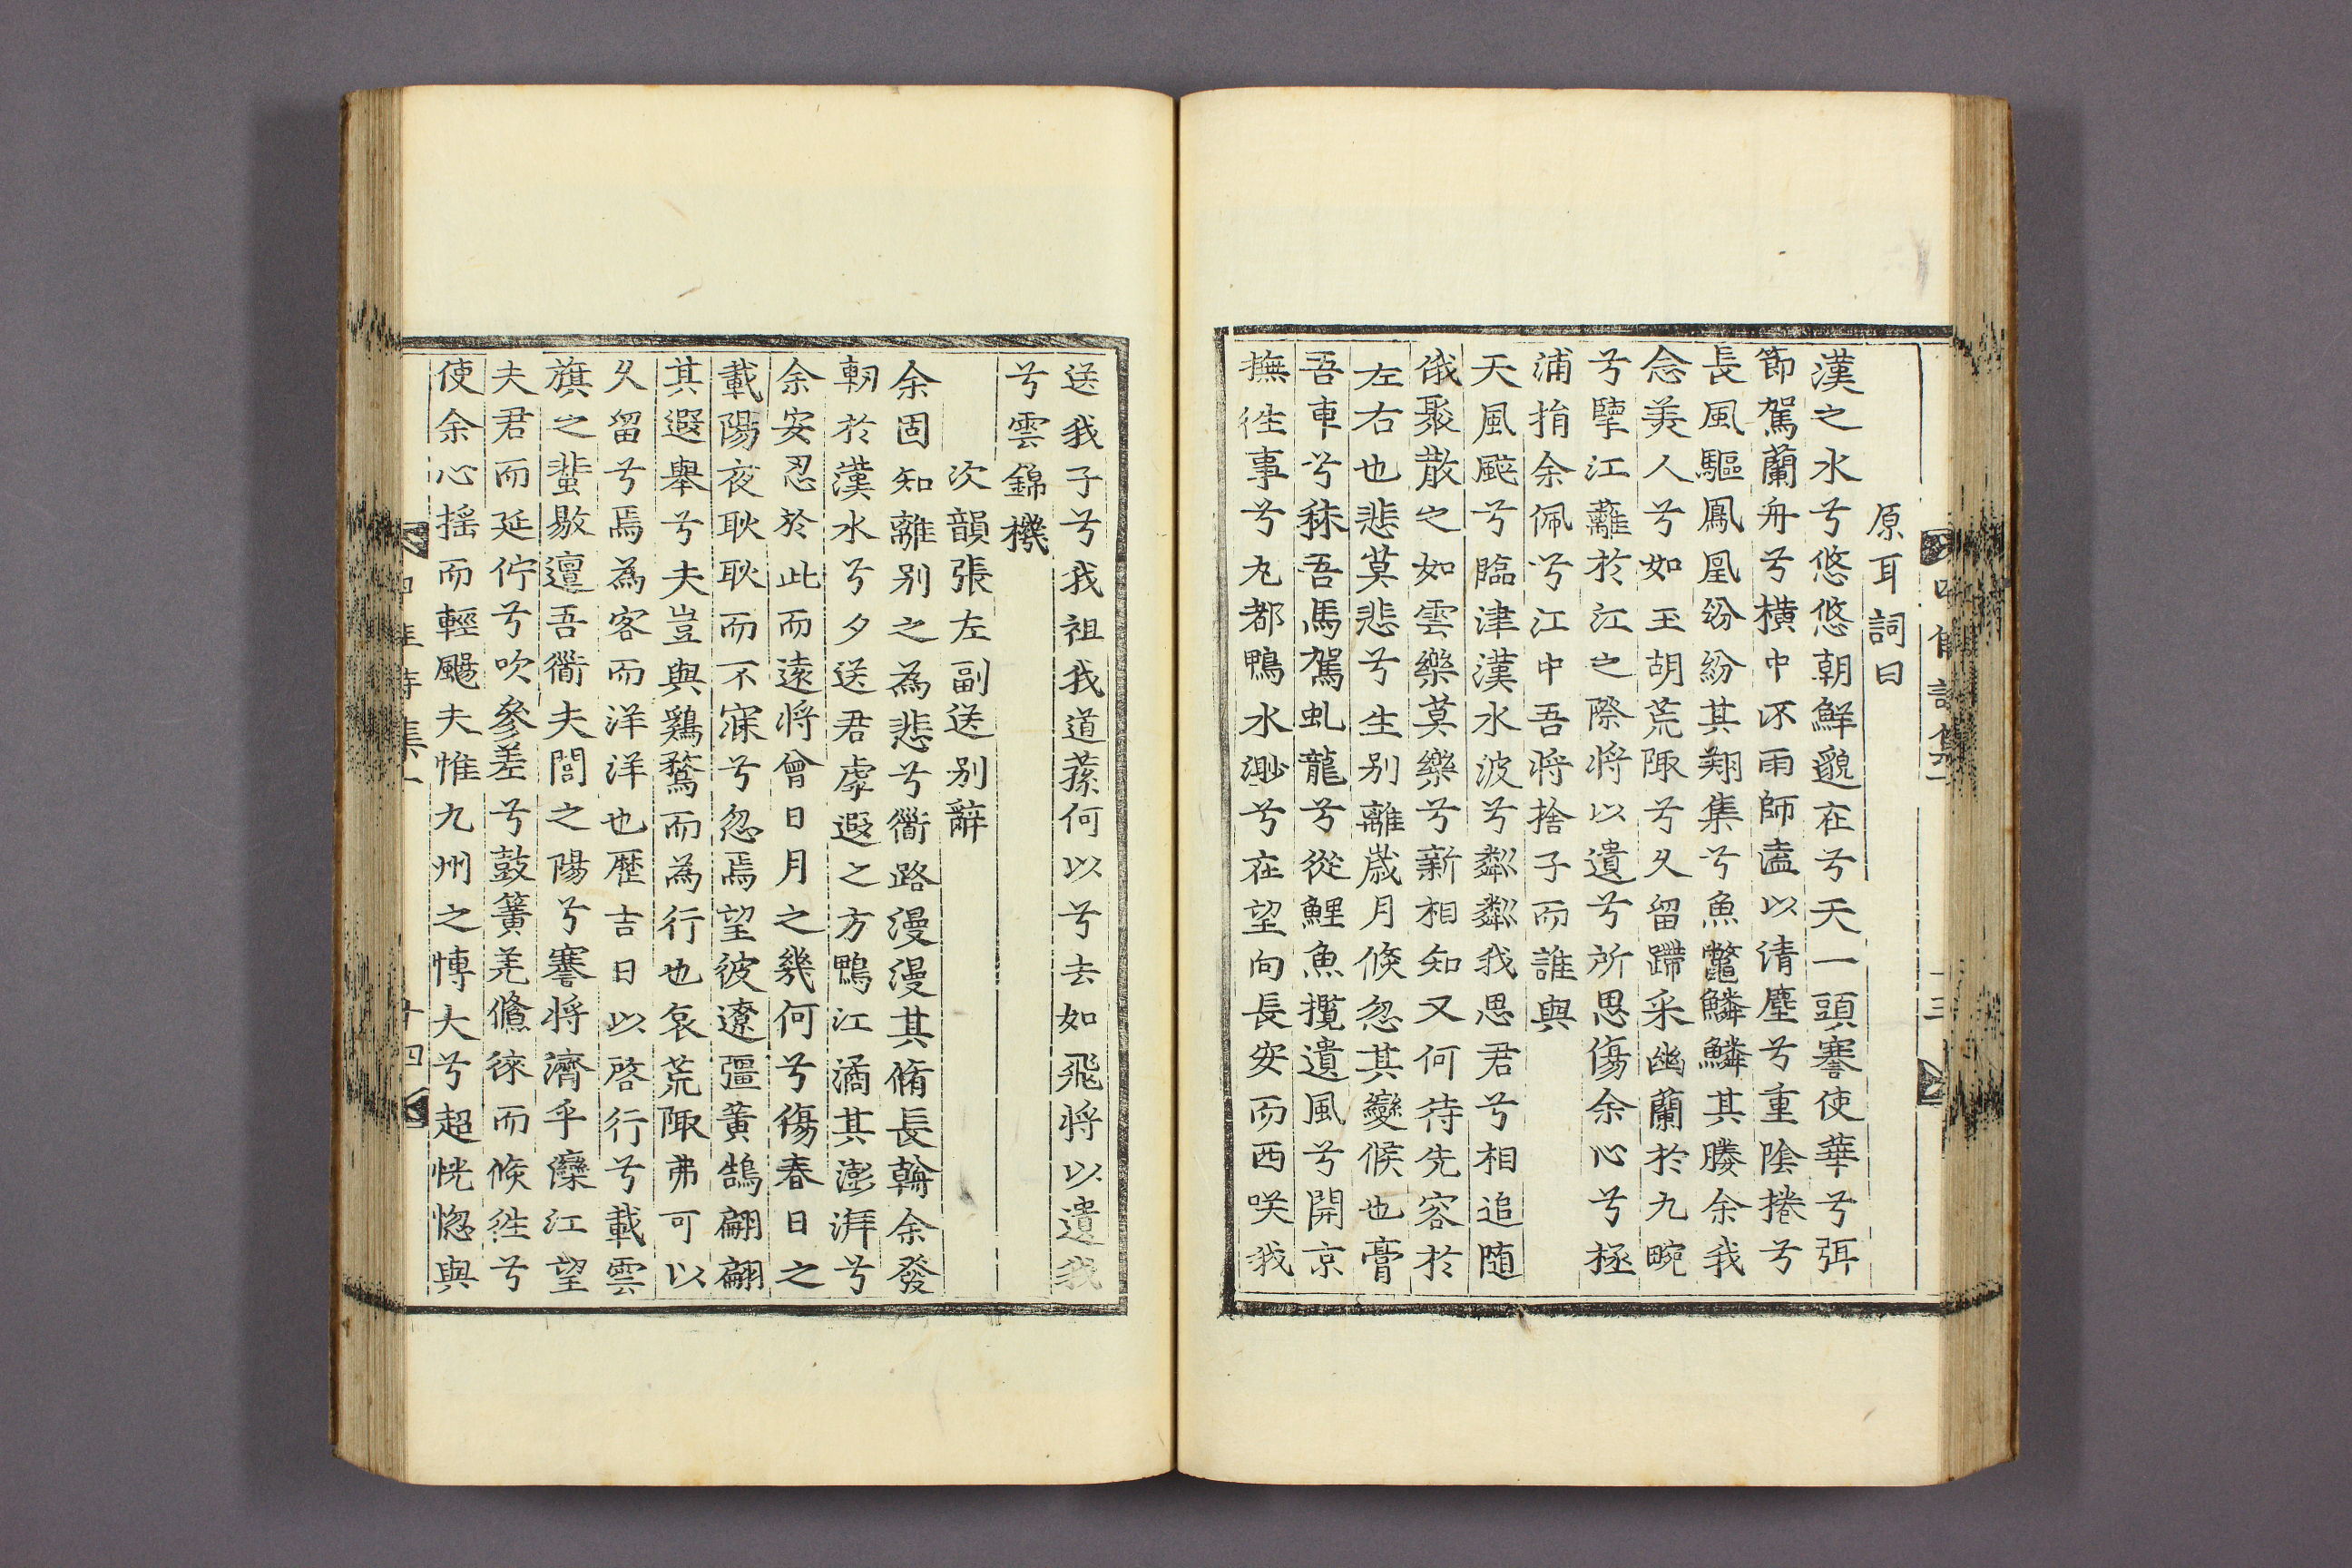 原耳詞曰
漢之水兮悠悠朝鮮邈在兮天一頭謇使華兮弭
節駕蘭舟兮横中沠雨師溘以清塵兮重陰捲兮
長風驅鳳凰紛紛其翔集兮魚鼈鱗鱗其媵余我
念美人兮如玉胡荒陬兮久留蹛采幽蘭於九畹
兮擥江蘺於江之際將以遺兮所思傷余心兮極
浦捐余佩兮江中吾將捨子而誰與
天風颭兮臨津漢水波兮粼粼我思君兮相追随
俄聚散之如雲樂莫樂兮新相知又何待先容於
左右也悲莫悲兮生别離歲月倏忽其變候也膏
吾車兮秣吾馬駕虬龍兮從鯉魚攬遺風兮開京
撫徃事兮九都鴨水渺兮在望向長安而西咲我
送我子兮我祖我道蓀何以兮去如飛將以遺我
兮雲錦機
次韻張左副送别辭
余固知離别之為悲兮衢路漫漫其脩長翰余發
朝於漢水兮夕送君虖遐之方鴨江潏其澎湃兮
余安忍於此而遠將曾日月之幾何兮傷春日之
載陽夜耿耿而不寐兮忽焉望彼遼彊黄鵠翩翩
其遐舉兮夫豈與鷄鶩而為行也哀荒陬弗可以
久留兮焉為客而洋洋也歷吉日以啓行兮載雲
旗之蜚敭邅吾衢夫閭之陽兮謇將濟乎灤江望
夫君而延佇兮吹參差兮鼓簧羌儵徠而倏徃兮
使余心揺而輕颺夫惟九州之愽大兮超恍惚與
十四